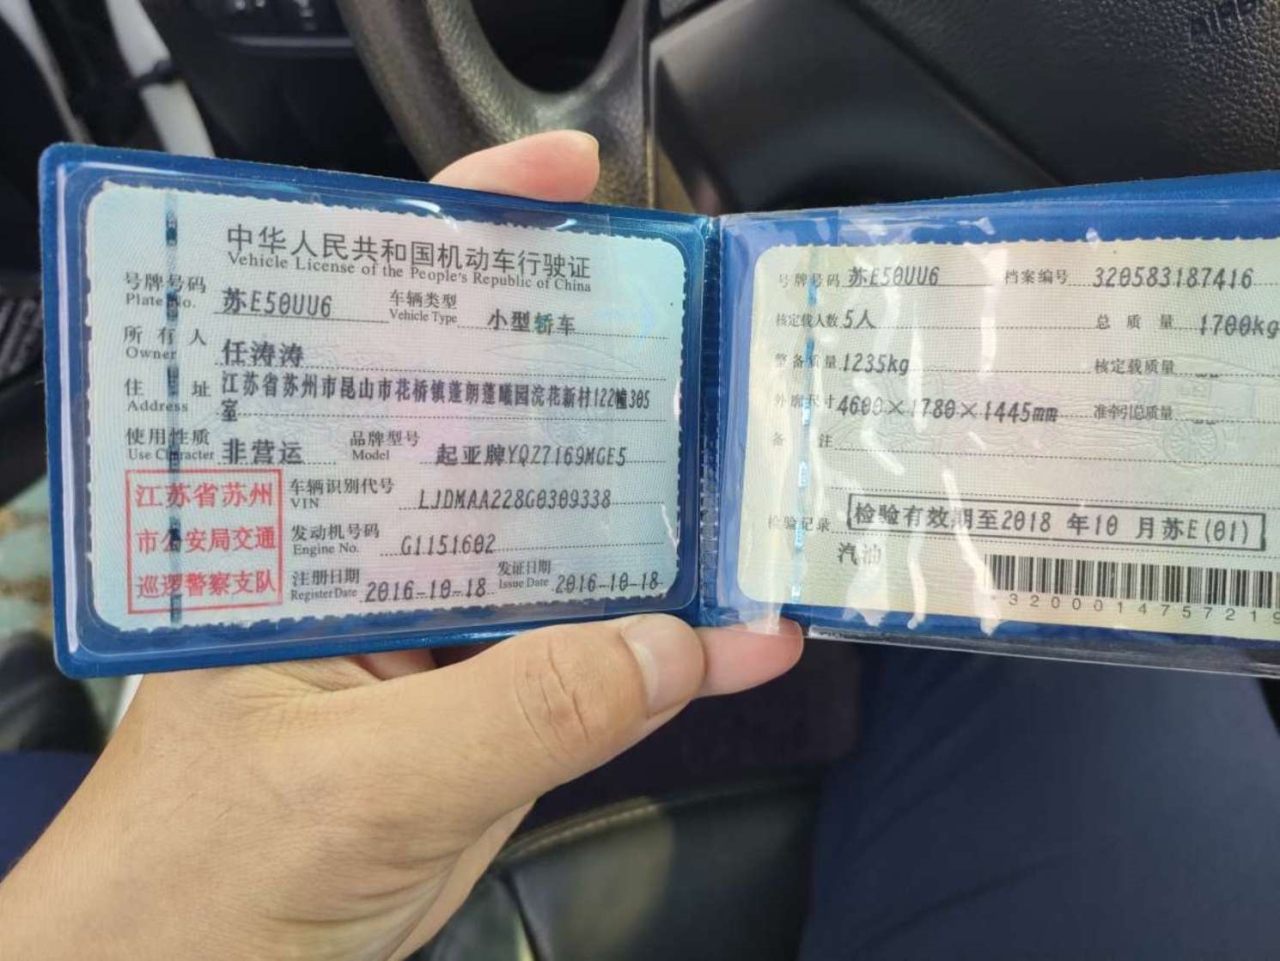 中华人民共和国机动车行驶证
Vehicle License of the People's Republic of China
号牌号码 苏E50UU6 车辆类型 小型轿车
Plate No. Vehicle Type
所有人 任涛涛
Owner
住址 江苏省苏州市昆山市花桥镇蓬朗蓬曦园浣花新村122幢305
Address 室
使用性质 非营运 品牌型号 起亚牌YQZ7169MGE5
Use Character Model
江苏省苏州
市公安局交通
巡逻警察支队
车辆识别代号 LJDMAA228G0309338
VIN
发动机号码 G1151602
Engine No.
注册日期 2016-10-18 发证日期 2016-10-18
Register Date Issue Date
号牌号码 苏E50UU6 档案编号 320583187416
核定载人数 5人 总质量 1700kg
整备质量 1235kg 核定载质量 --
外廓尺寸 4600×1780×1445mm 准牵引总质量 --
备注
检验记录 检验有效期至2018 年10 月苏E(01)
汽油